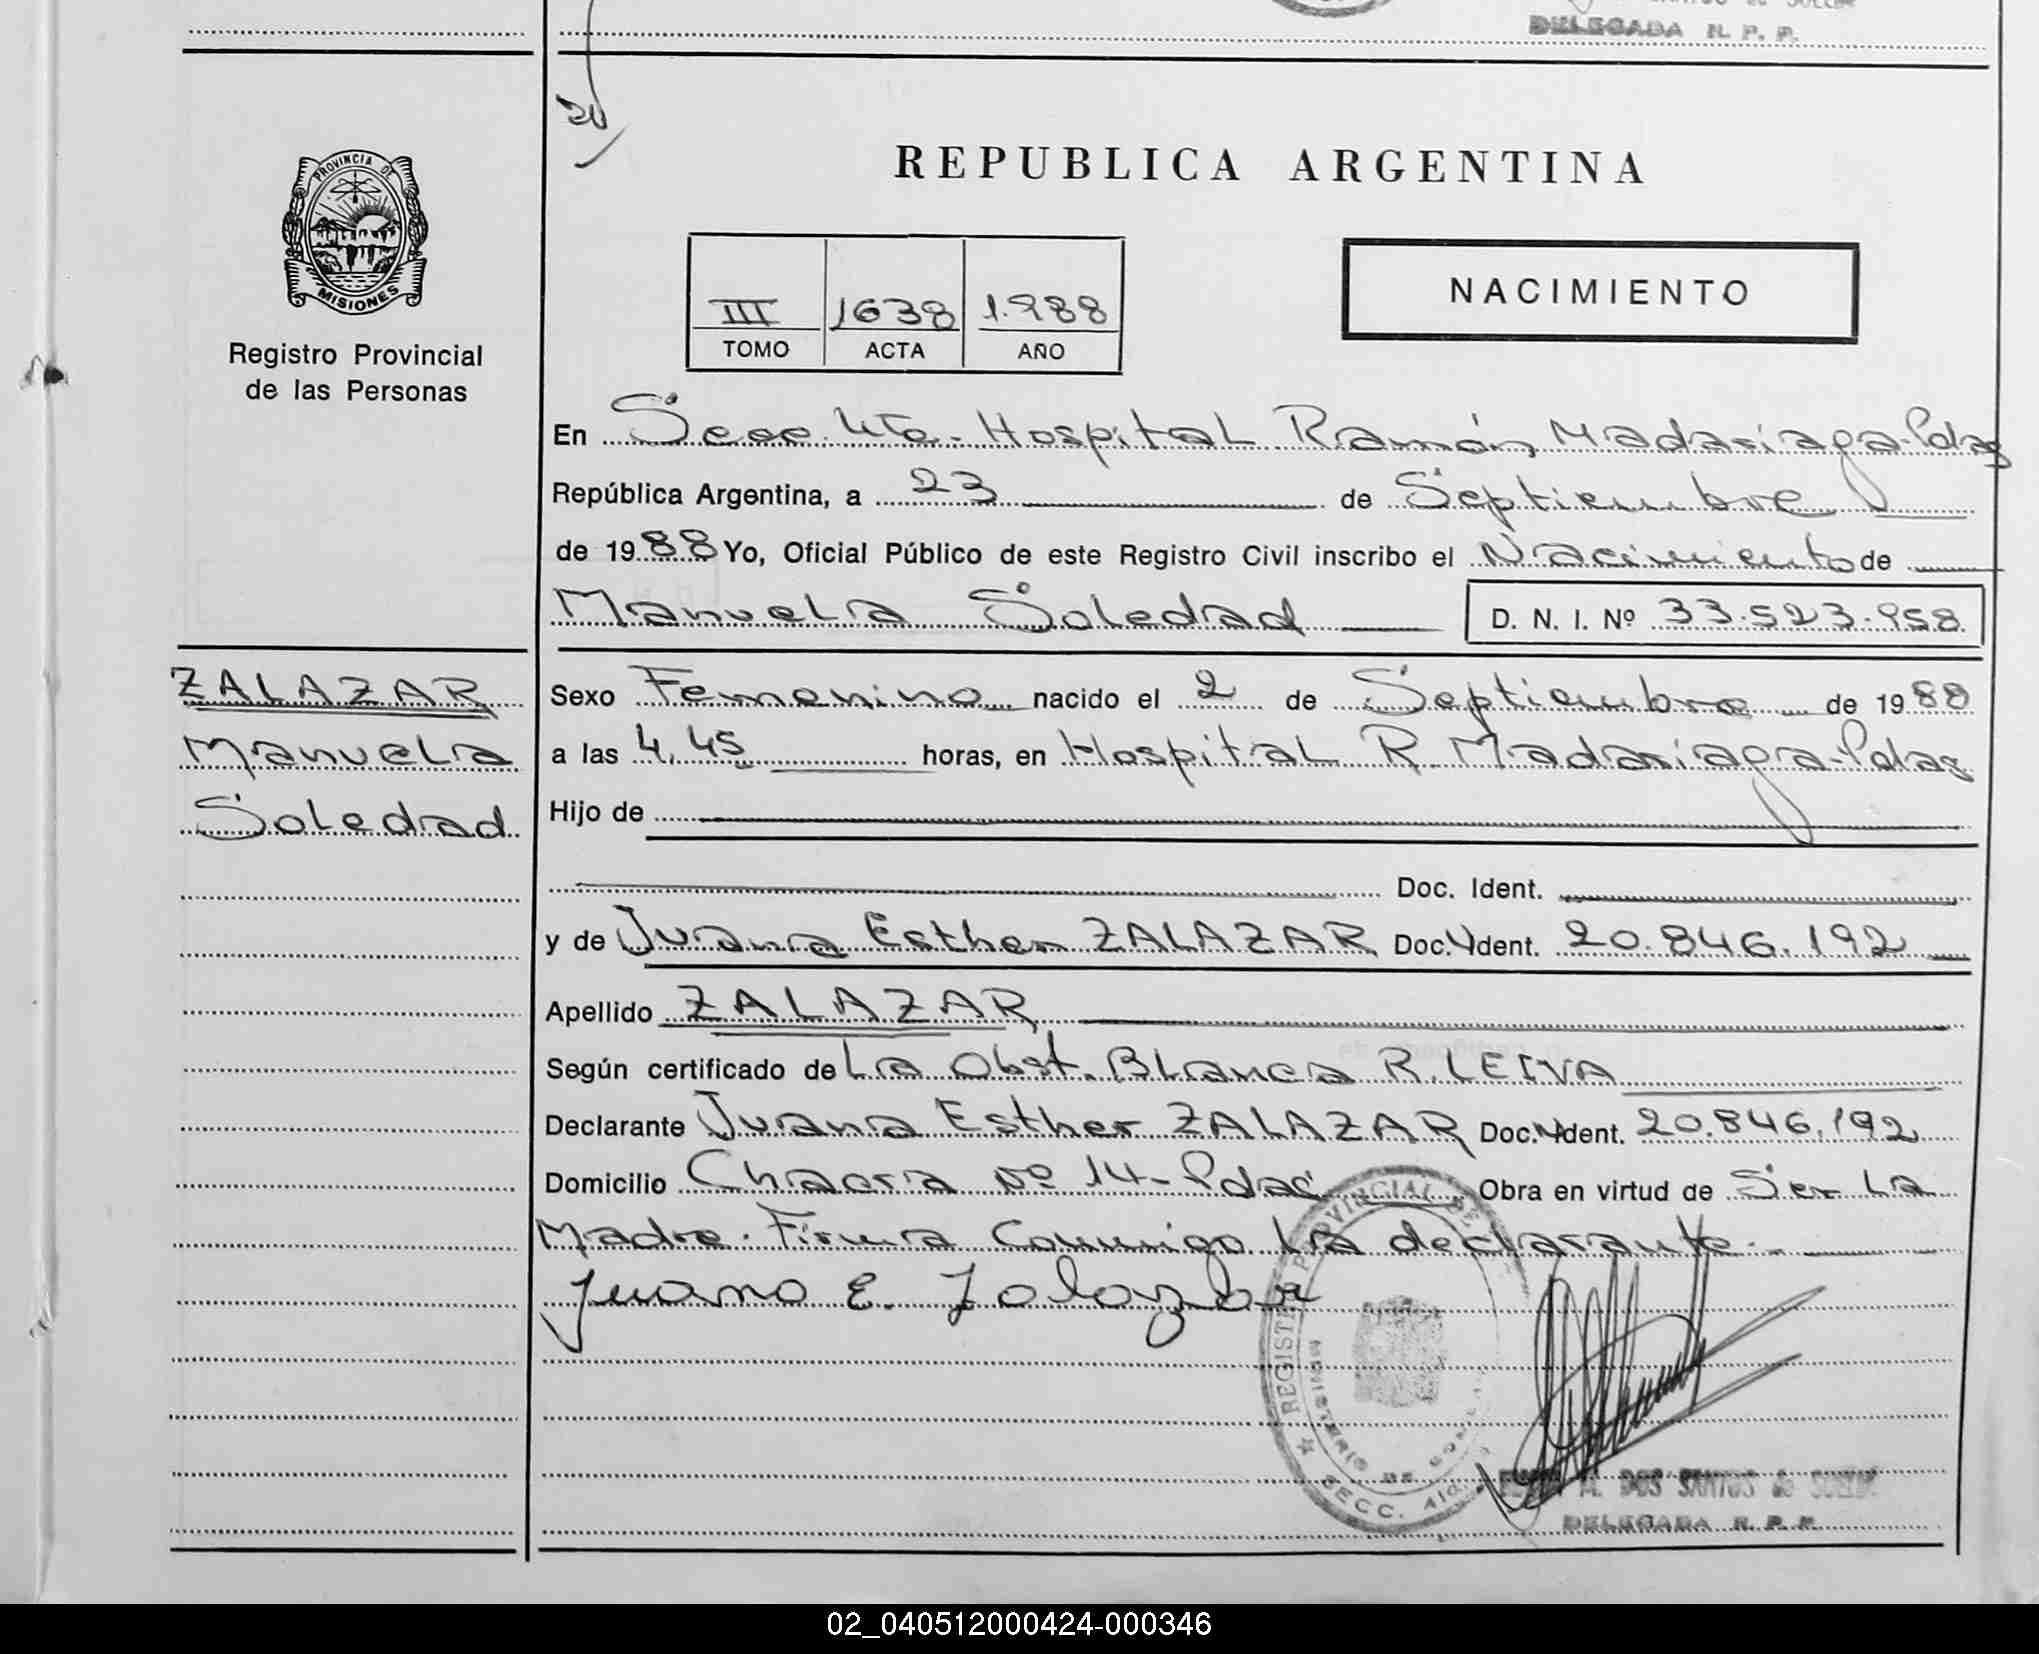 DELEGADA R. P. P.
PROVINCIA DE
MISIONES
Registro Provincial
de las Personas
REPUBLICA ARGENTINA
III 1638 1.988
TOMO ACTA AÑO
NACIMIENTO
En Secc. 4ta. Hospital Ramón Madariaga-Pdas
República Argentina, a 23 de Septiembre
de 1988 Yo, Oficial Público de este Registro Civil inscribo el Nacimiento de
Manuela Soledad D. N. I. Nº 33.523.958
ZALAZAR
Manuela
Soledad
Sexo Femenino nacido el 2 de Septiembre de 1988
a las 4,45 horas, en Hospital R. Madariaga-Pdas
Hijo de
Doc. Ident.
y de Juana Esther ZALAZAR Doc. Ident. 20.846.192
Apellido ZALAZAR
Según certificado de La Obst. Blanca R. LEIVA
Declarante Juana Esther ZALAZAR Doc. Ident. 20.846.192
Domicilio Chacra Nº 14- Pdas Obra en virtud de Ser La
Madre. Firma Conmigo La declarante.
Juana E. Zalazar
REGISTRO PROVINCIAL DE
MINISTERIO DE
SECC.
M. DOS SANTOS de
DELEGADA R. P. P.
02_040512000424-000346